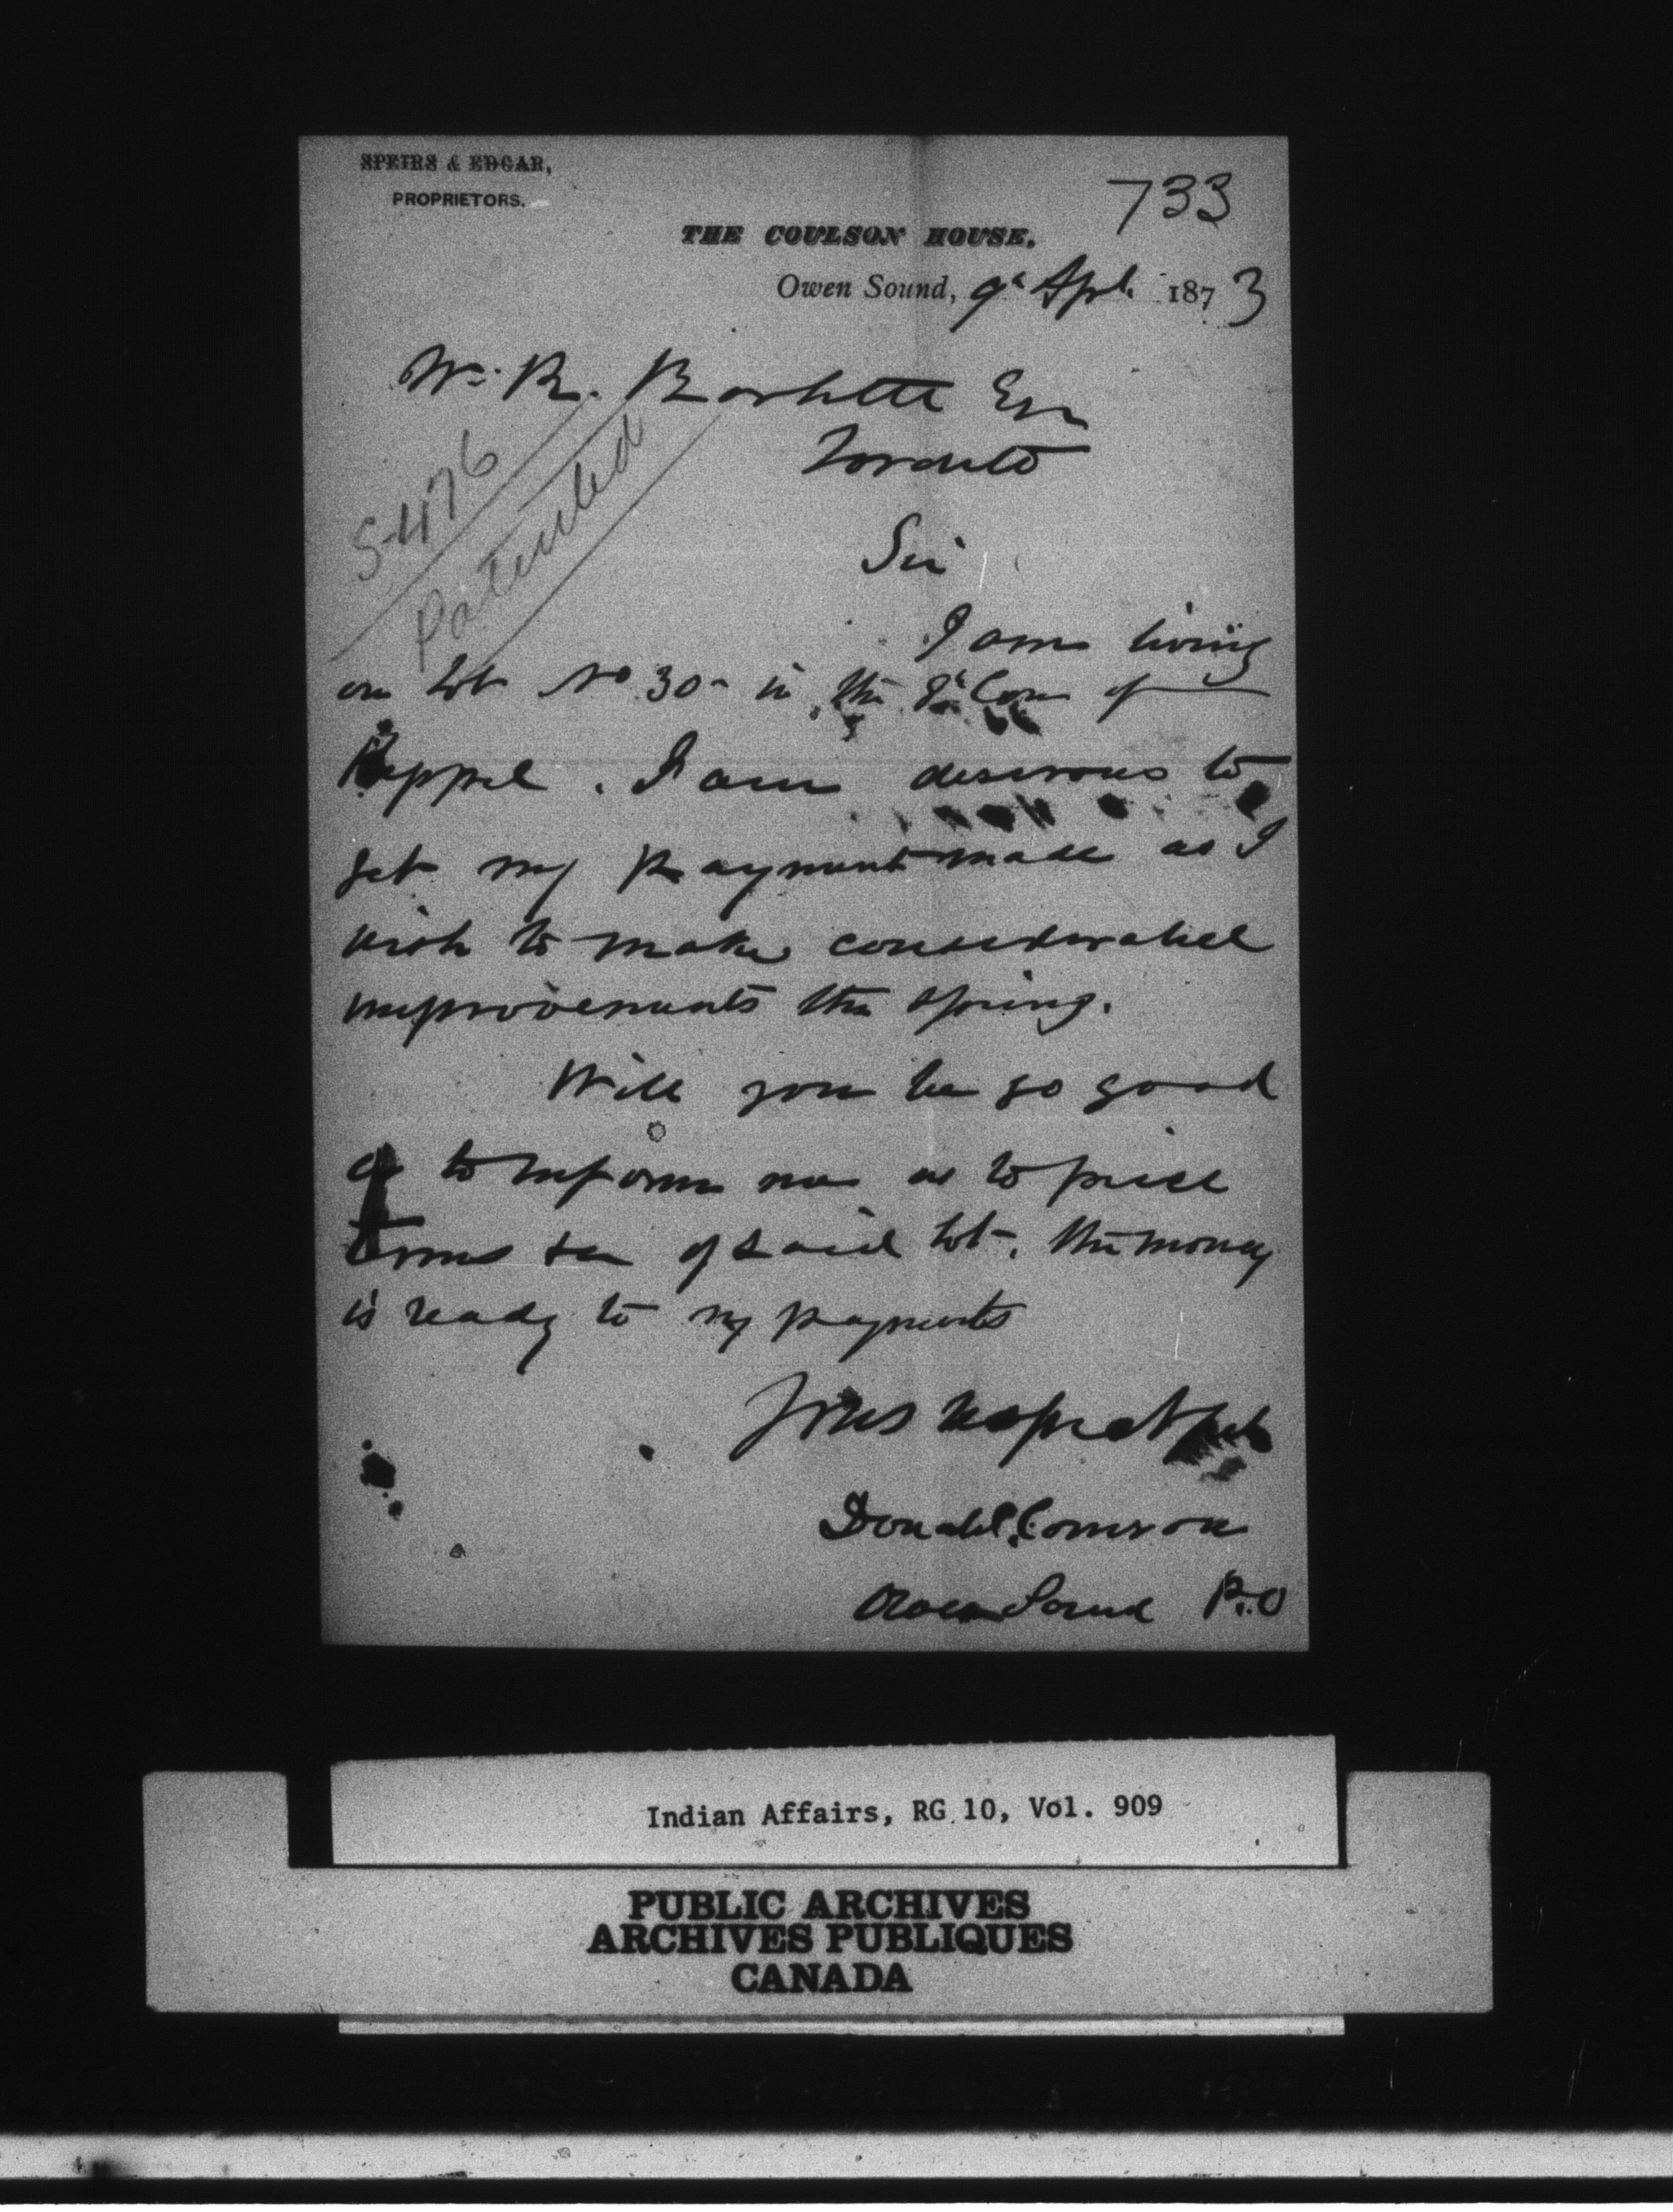 SPEIRS & EDGAR,
PROPRIETORS.
733
THE COULSON HOUSE,
Owen Sound, 9th Apl. 1873
Wm. R. Bartlett Esq
Toronto
S-476
Patented
Sir
I am living
on Lot No 30 - in the 8th Con of
Keppel. I am desirous to
get my payment made as I
wish to make considerabel
improvements this spring.
Will you be so good
as to inform me as to price
terms &c of said lot. the money
is ready to my payments
Yours respectfuly
Donald Cameron
Owen Sound P.O
Indian Affairs, RG 10, Vol. 909
PUBLIC ARCHIVES
ARCHIVES PUBLIQUES
CANADA